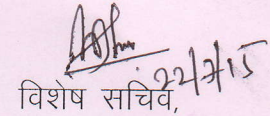 22/7/15
विशेष सचिव,